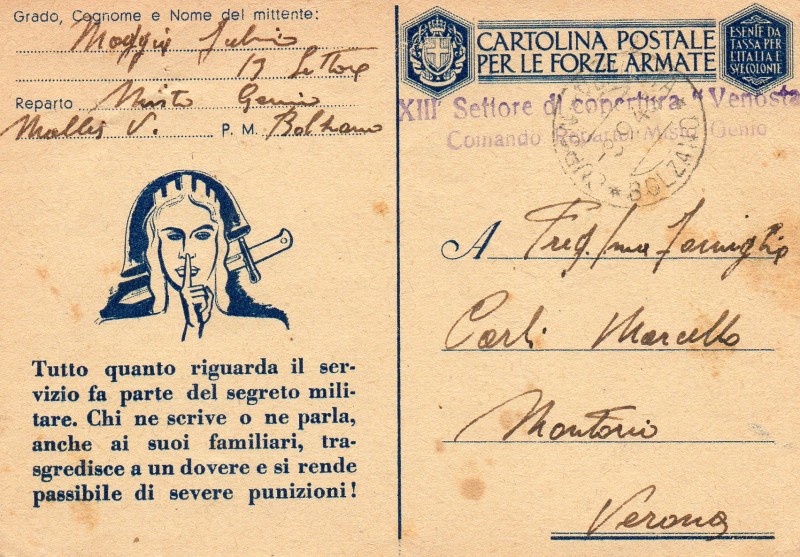 Grado, Cognome e Nome del mittente:
Maggio
13 Settore
Reparto Misto Genio
Malles V. P. M. Bolzano
Tutto quanto riguarda il ser-
vizio fa parte del segreto mili-
tare. Chi ne scrive o ne parla,
anche ai suoi familiari, tra-
sgredisce a un dovere e si rende
passibile di severe punizioni!
CARTOLINA POSTALE
PER LE FORZE ARMATE
ESENTE DA
TASSA PER
L'ITALIA E
SUE COLONIE
XIII Settore di copertura "Venosta
Comando Reparto Misto Genio
BOLZANO
A Preg/ma Famiglia
Carli Marcello
Montorio
Verona